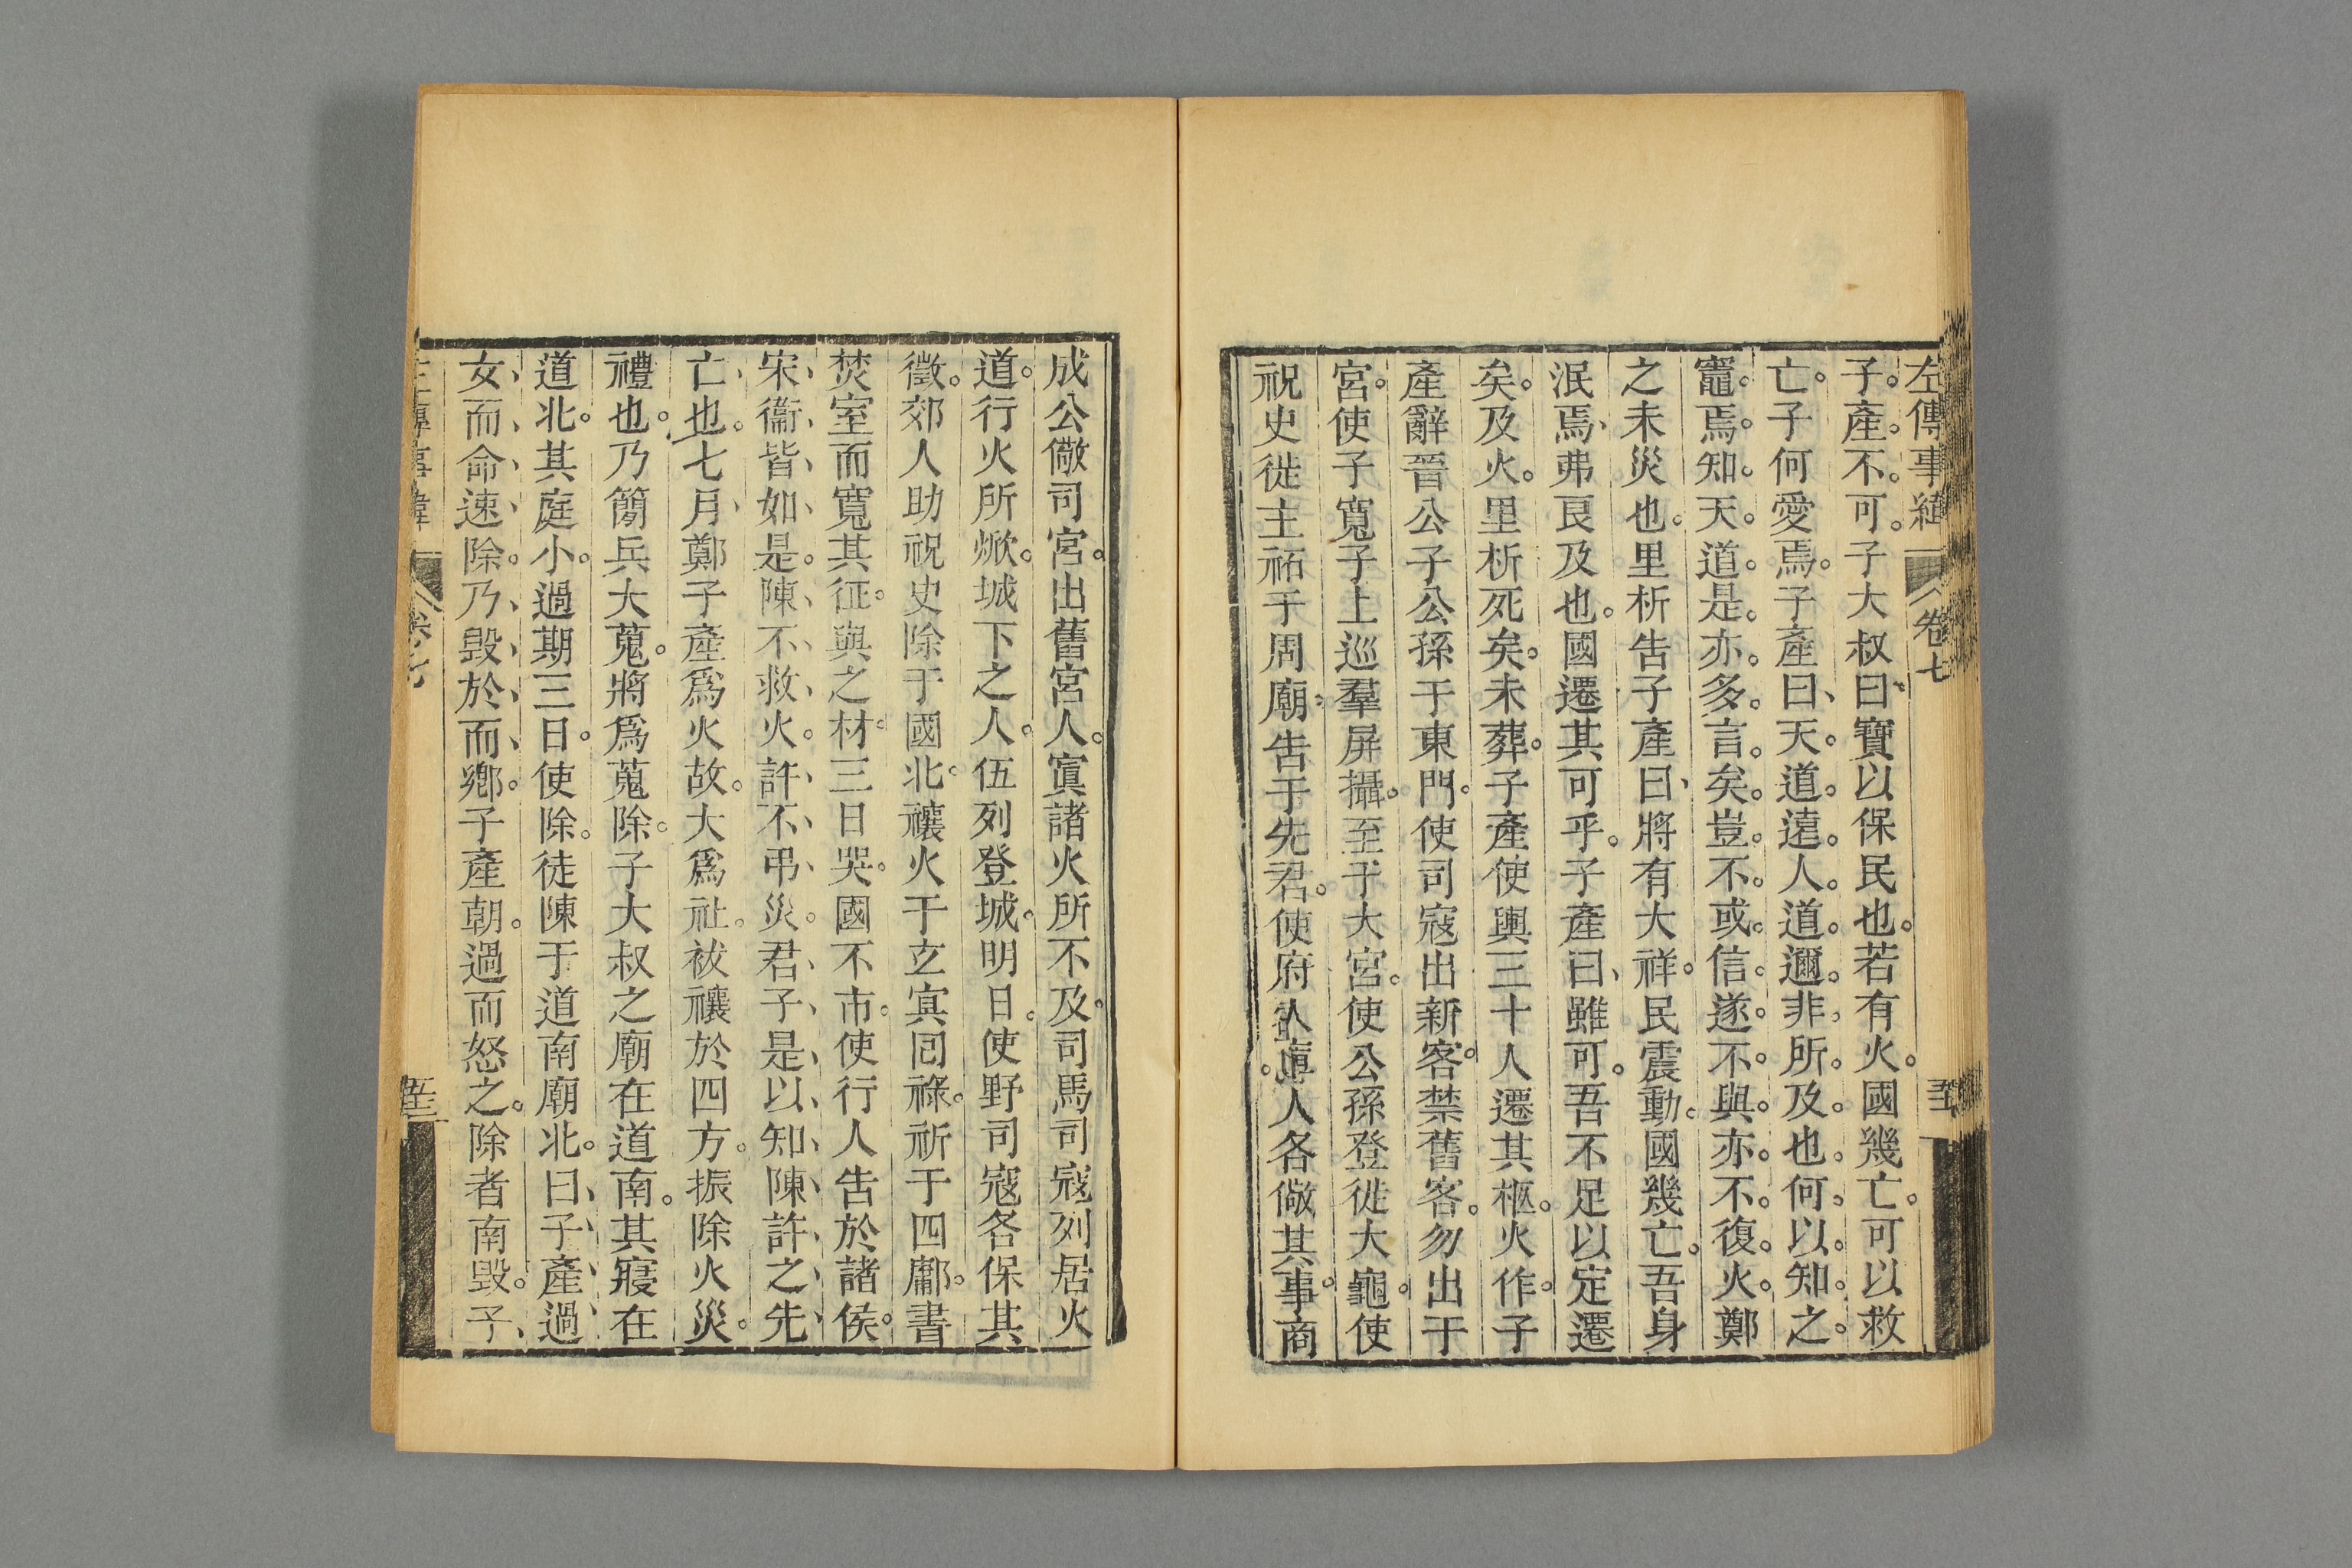 左傳事緯
卷七
子產不可子大叔曰寶以保民也若有火國幾亡可以救
亡子何愛焉子產曰天道遠人道邇非所及也何以知之
竈焉知天道是亦多言矣豈不或信遂不與亦不復火鄭
之未災也里析告子產曰將有大祥民震動國幾亡吾身
泯焉弗良及也國遷其可乎子產曰雖可吾不足以定遷
矣及火里析死矣未葬子產使輿三十人遷其柩火作子
產辭晉公子公孫于東門使司寇出新客禁舊客勿出于
宮使子寬子上巡羣屏攝至于大宮使公孫登徙大龜使
祝史徙主祏于周廟告于先君使府人人各儆其事商
成公儆司宮出舊宮人寘諸火所不及司馬司寇列居火
道行火所焮城下之人伍列登城明日使野司寇各保其
徵郊人助祝史除于國北禳火于玄冥回祿祈于四鄘書
焚室而寬其征與之材三日哭國不市使行人告於諸侯
宋衞皆如是陳不救火許不弔災君子是以知陳許之先
亡也七月鄭子產爲火故大爲社祓禳於四方振除火災
禮也乃簡兵大蒐將爲蒐除子大叔之廟在道南其寢在
道北其庭小過期三日使除徒陳于道南廟北曰子產過
女而命速除乃毀於而鄉子產朝過而怒之除者南毀子